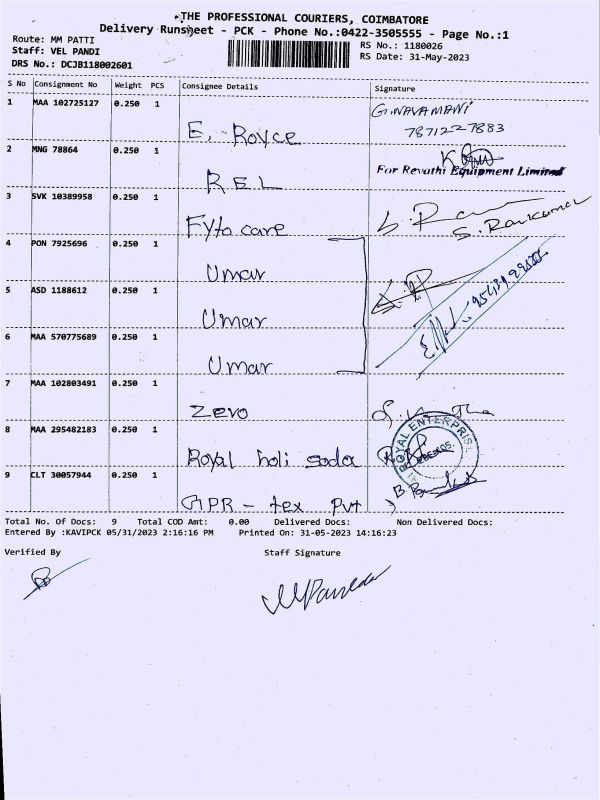 THE PROFESSIONAL COURIERS, COIMBATORE
Delivery Runsheet - PCK - Phone No.:0422-3505555 - Page No.:1
Route: MM PATTI
RS No.: 1180026
Staff: VEL PANDI
RS Date: 31-May-2023
DRS No.: DCJB118002601
S No Consignment No Weight PCS Consignee Details Signature
1 MAA 102725127 0.250 1
G.NAVAMANi
7871227883
E. Royce
2 MNG 78864 0.250 1
For Revathi Equipment Limited
REL
3 SVK 10389958 0.250 1
Fyto care
S. Ravikumar
4 PON 7925696 0.250 1
Umar
5 ASD 1188612 0.250 1
Umar
6 MAA 570775689 0.250 1
Umar
7 MAA 102803491 0.250 1
Zero
8 MAA 295482183 0.250 1
ROYAL ENTERPRIS
Royal holi soda
9 CLT 30057944 0.250 1
GPR - tex Pvt
Total No. Of Docs: 9 Total COD Amt: 0.00 Delivered Docs: Non Delivered Docs:
Entered By :KAVIPCK 05/31/2023 2:16:16 PM Printed On: 31-05-2023 14:16:23
Verified By Staff Signature